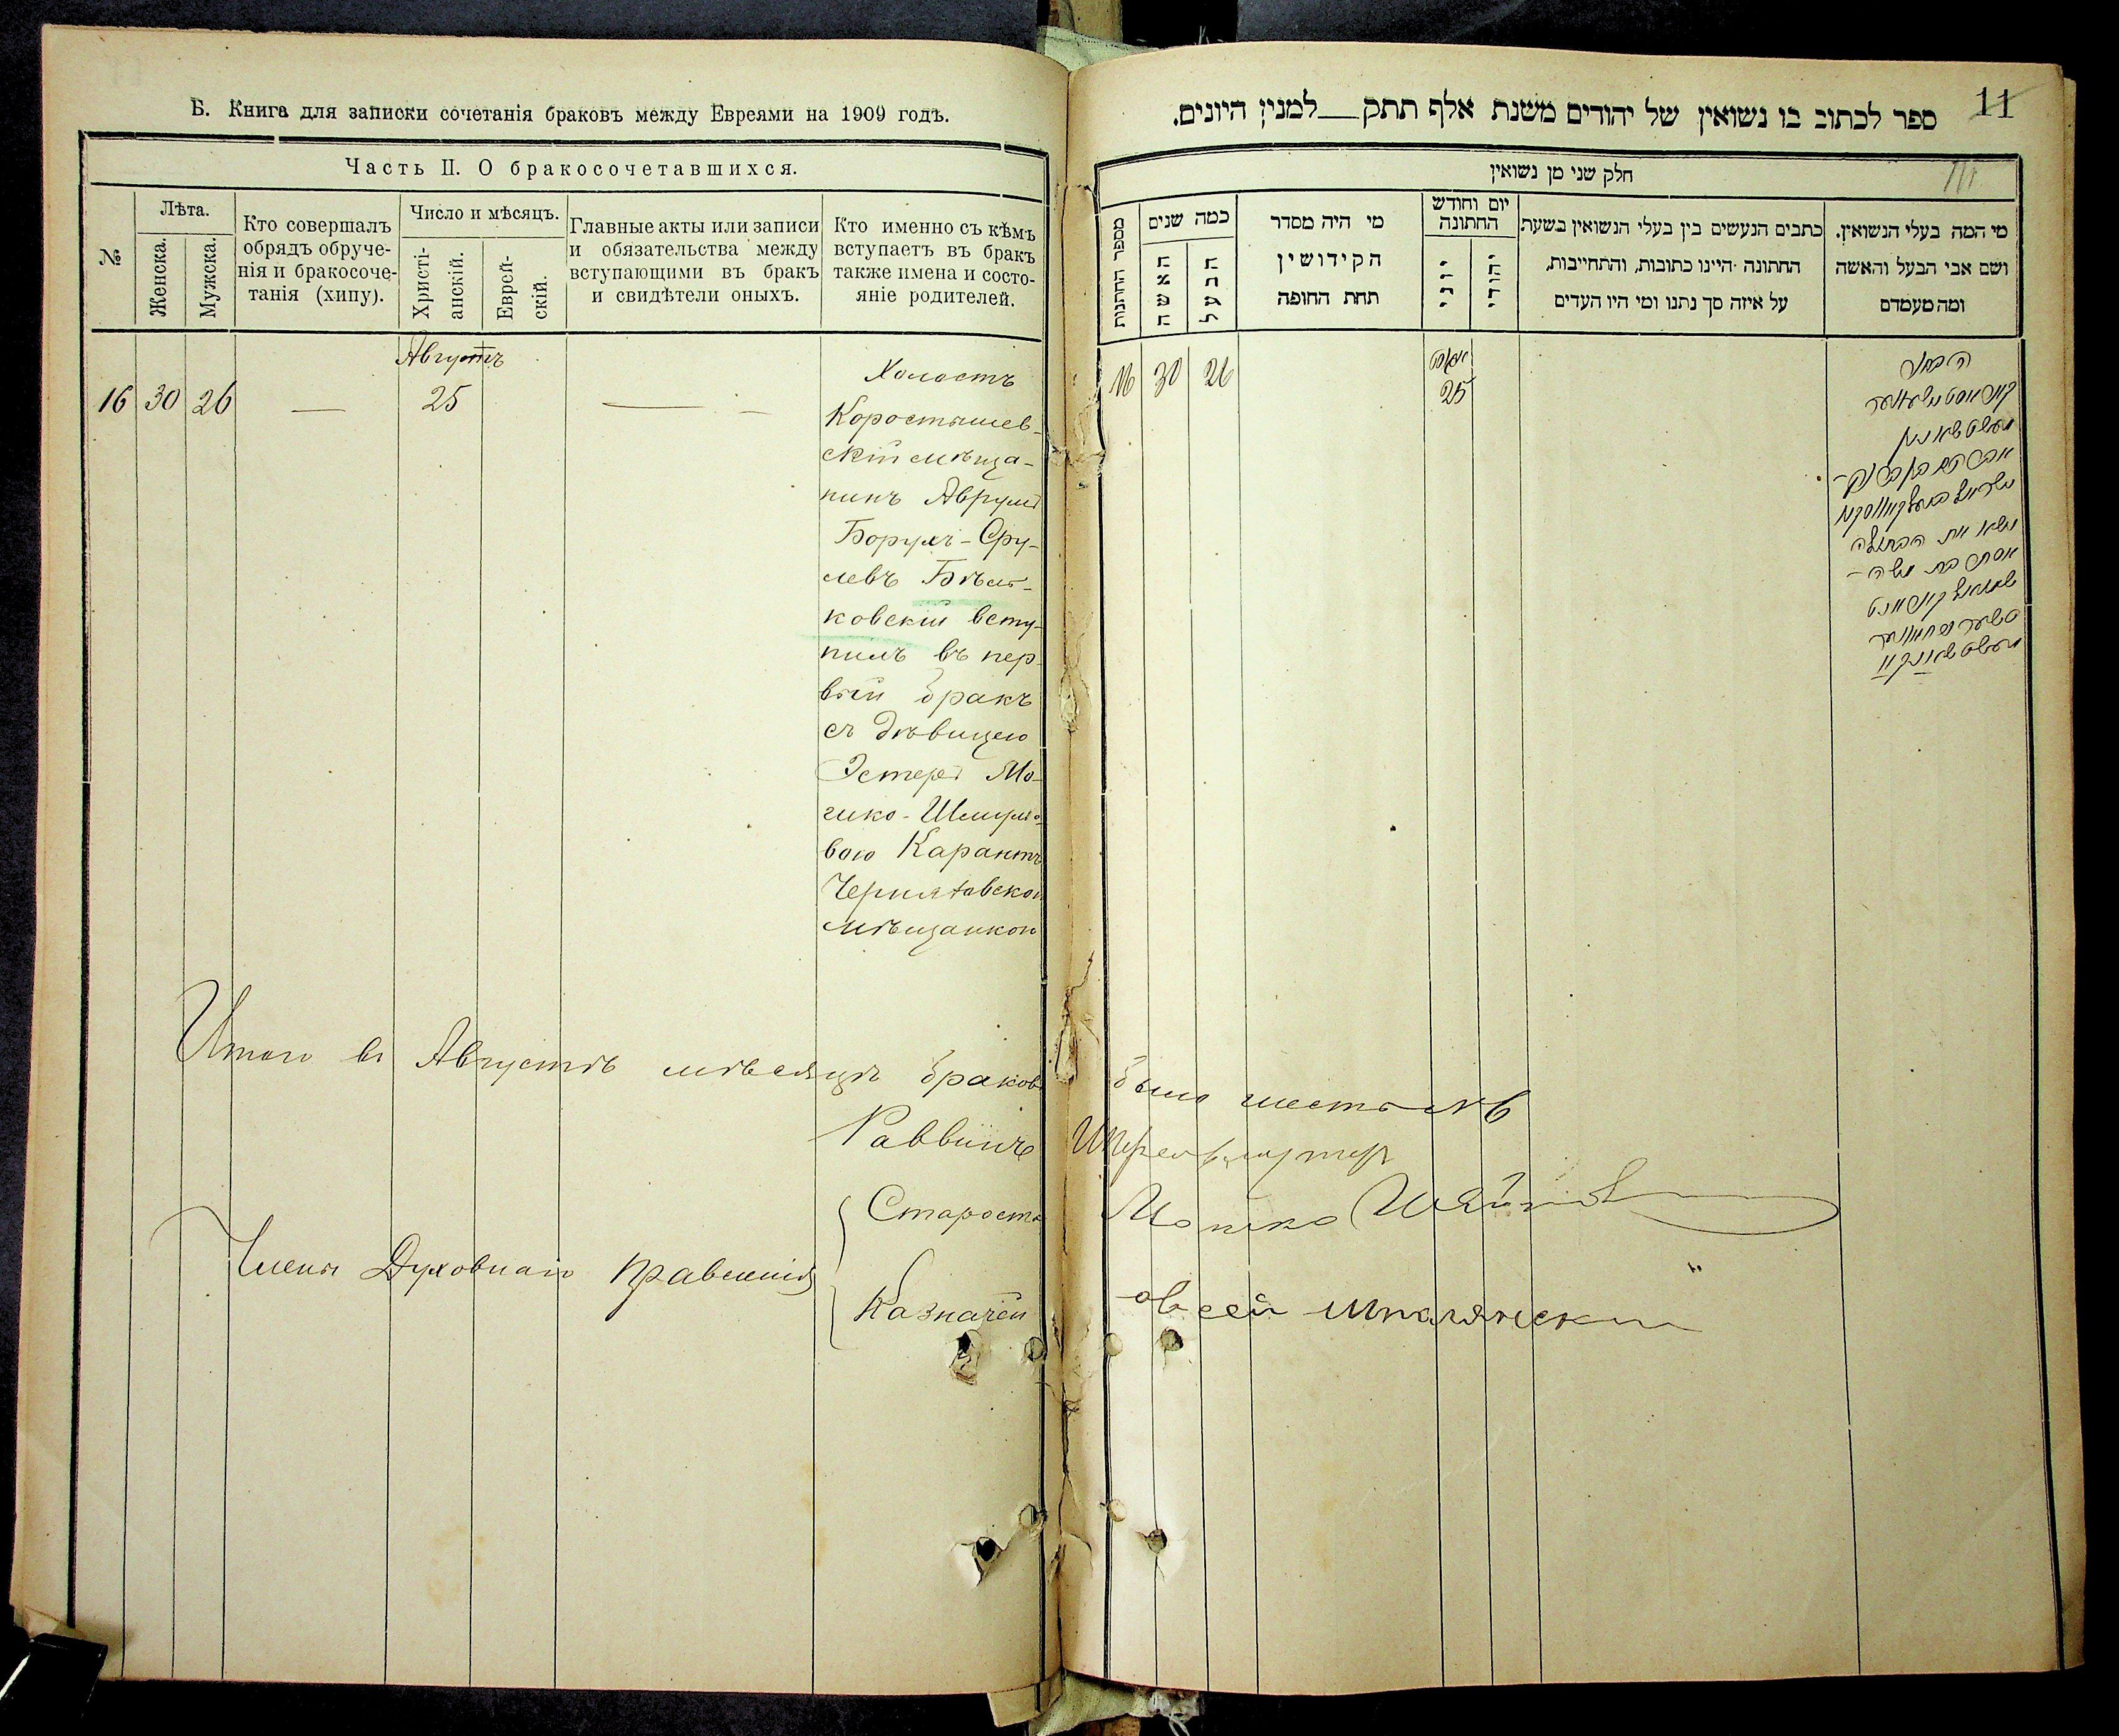 Б. Книга для записки сочетанія браковъ между Евреями на 1909 годъ.
Часть II. О бракосочетавшихся.
№
Лѣта.
Женска.
Мужска.
Кто совершалъ
обрядъ обруче-
нія и бракосоче-
танія (хипу).
Число и мѣсяцъ.
Христі-
анскій.
Еврей-
скій.
Главные акты или записи
и обязательства между
вступающими въ бракъ
и свидѣтели оныхъ.
Кто именно съ кѣмъ
вступаетъ въ бракъ
также имена и состо-
яніе родителей.
Августъ
16 30 26 — 25 — —
Холостъ
Коростышев-
скій мѣща-
нинъ Аврумъ
Борухъ-Сру-
левъ Бѣлъ-
ковскій всту-
пилъ въ пер-
вый бракъ
съ дѣвицею
Эстерѣ Мо-
шко-Шмуле-
вою Карантъ
Чернятовскою
мѣщанкою
Итого въ Августѣ мѣсяцѣ браковъ было шесть №6
Раввинъ
Члены Духовнаго Правленія
Староста
Мошко
Казначей
Овсей Шполянский
11
ספר לכתוב בו נשואין של יהודים משנת אלף תתק__למנין היונים.
חלק שני מן נשואין
מספר החתנות
כמה שנים
האשה
הבעל
מי היה מסדר
הקידושין
תחת החופה
יום וחודש
החתונה
יוני
יהודי
כתבים הנעשים בין בעלי הנשואין בשעת
החתונה היינו כתובות, והתחייבות,
על איזה סך נתנו ומי היו העדים
מי המה בעלי הנשואין.
ושם אבי הבעל והאשה
ומה מעמדם
16 30 26
25
הבחור
נשא את הבתולה
אסתר בת משה-